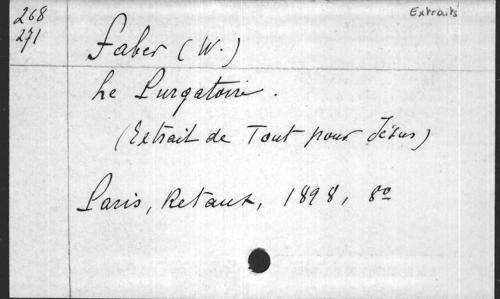 268
271
Extraits
Faber (W.)
Le Purgatoire.
(Extrait de Tout pour Jésus)
Paris, Retaux, 1898, 8º